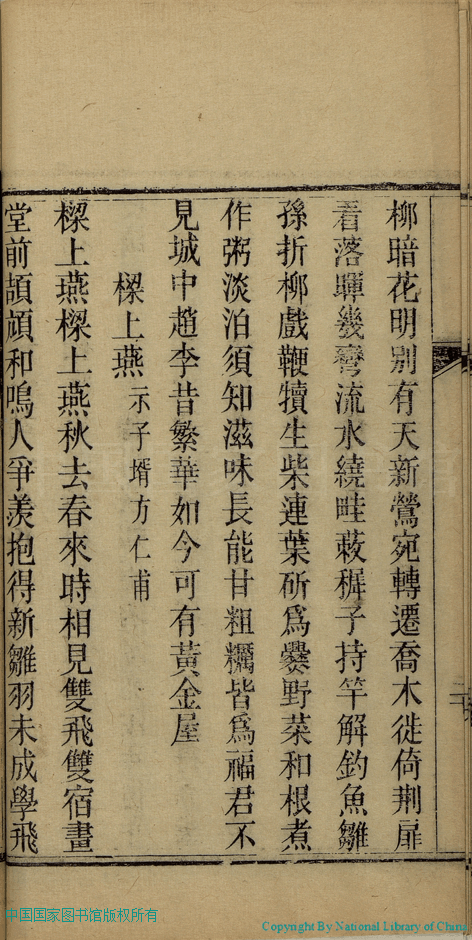 柳暗花明別有天新鶯宛轉遷喬木徙倚荆扉
看落暉幾彎流水繞畦蔌穉子持竿解釣魚雛
孫折柳戲鞭犢生柴連葉斫爲爨野菜和根煮
作粥淡泊須知滋味長能甘粗糲皆爲福君不
見城中趙李昔繁華如今可有黃金屋
樑上燕示子壻方仁甫
樑上燕樑上燕秋去春來時相見雙飛雙宿畫
堂前頡頏和鳴人爭羨抱得新雛羽未成學飛
中国国家图书馆版权所有
Copyright By National Library of China